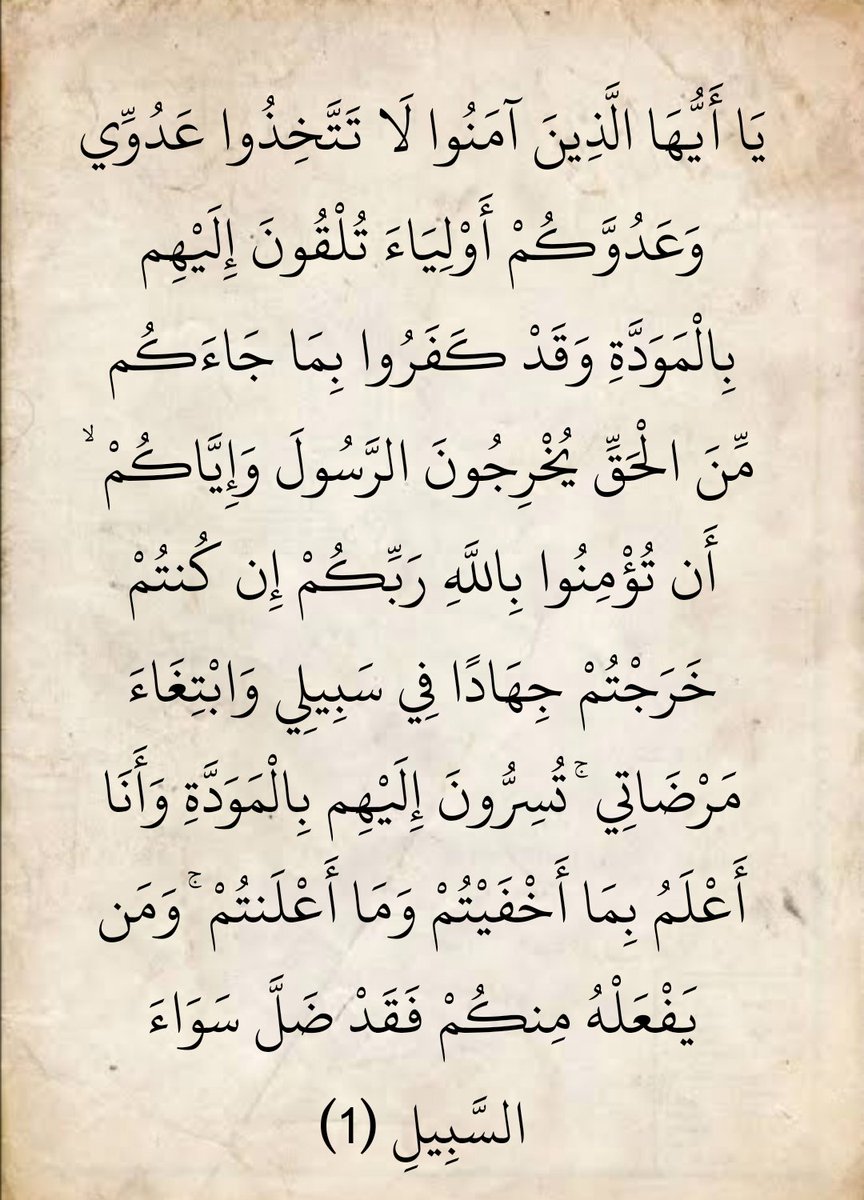 يَا أَيُّهَا الَّذِينَ آمَنُوا لَا تَتَّخِذُوا عَدُوِّي
وَعَدُوَّكُمْ أَوْلِيَاءَ تُلْقُونَ إِلَيْهِم
بِالْمَوَدَّةِ وَقَدْ كَفَرُوا بِمَا جَاءَكُم
مِّنَ الْحَقِّ يُخْرِجُونَ الرَّسُولَ وَإِيَّاكُمْ ۙ
أَن تُؤْمِنُوا بِاللَّهِ رَبِّكُمْ إِن كُنتُمْ
خَرَجْتُمْ جِهَادًا فِي سَبِيلِي وَابْتِغَاءَ
مَرْضَاتِي ۚ تُسِرُّونَ إِلَيْهِم بِالْمَوَدَّةِ وَأَنَا
أَعْلَمُ بِمَا أَخْفَيْتُمْ وَمَا أَعْلَنتُمْ ۚ وَمَن
يَفْعَلْهُ مِنكُمْ فَقَدْ ضَلَّ سَوَاءَ
السَّبِيلِ (1)